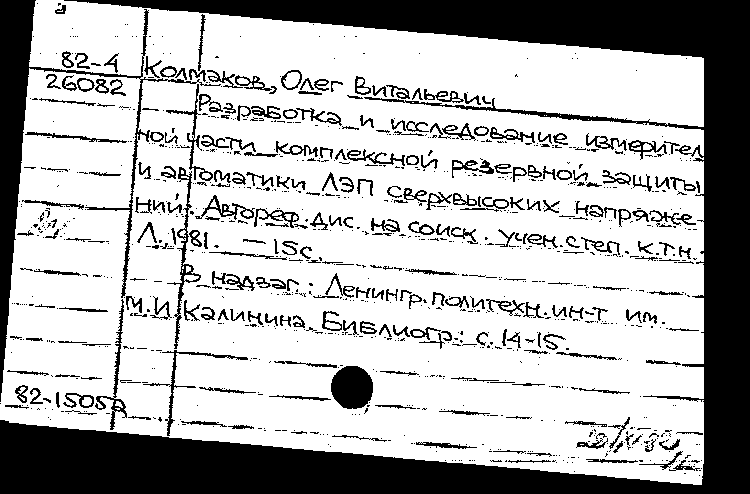 82-4
26082
Колмаков, Олег Витальевич
Разработка и исследование измерител
ной части комплексной резервной защиты
и автоматики ЛЭП сверхвысоких напряже-
ний: Автореф. дис. на соиск. учен. степ. к.т.н.-
Л., 1981. — 15с.
В надзаг.: Ленингр. политехн. ин-т им.
М.И. Калинина. Библиогр.: с. 14-15.
82-15052
20/IV 82